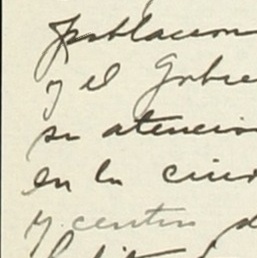 poblacion
y el Gobie
su atencio
en la ciud
y centro d